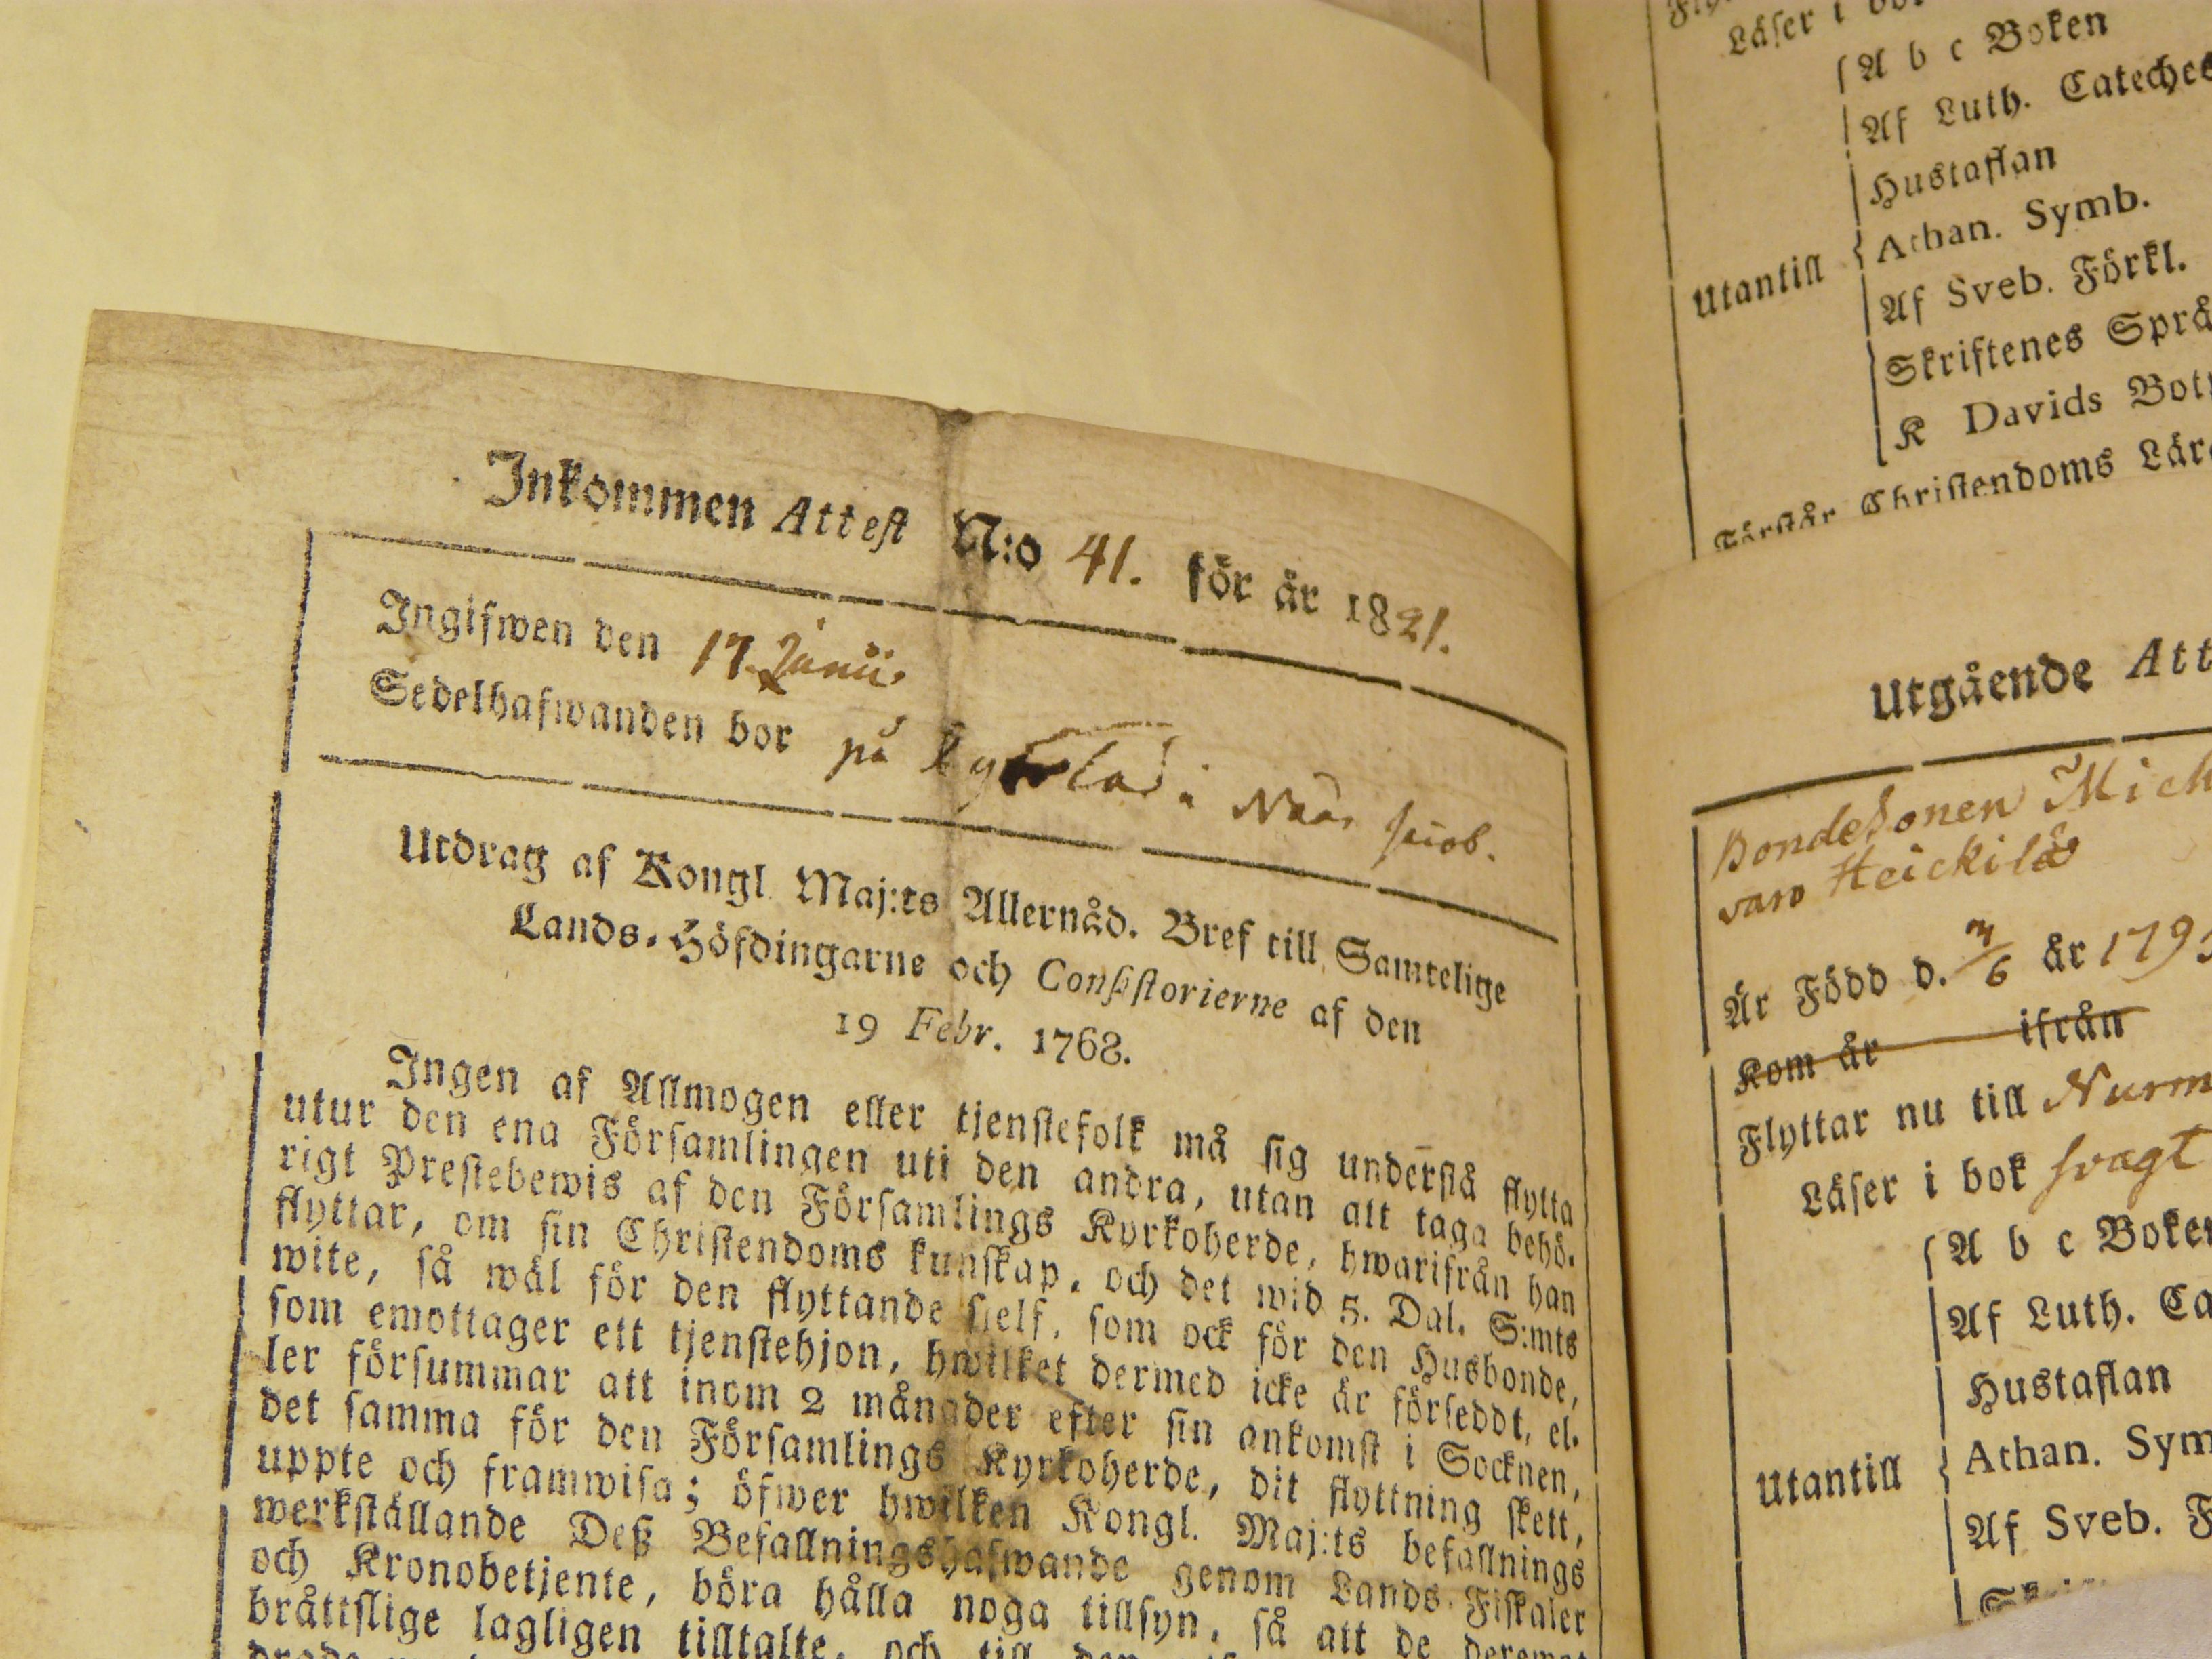 Inkommen Attest N:o 41. för år 1821.
Ingifwen den 17. Junii.
Sedelhafwanden bor på
Utdrag af Kongl. Maj:ts Allernåd. Bref till Samtelige
Lands-Höfdingarne och Consistorierne af den
19 Febr. 1768.
Ingen af Allmogen eller tjenstefolk må sig understå flytta
utur den ena Församlingen uti den andra, utan att taga behö-
rigt Prestebewis af den Församlings Kyrkoherde, hwarifrån han
flyttar, om sin Christendoms kunskap, och det wid 5. Dal. S:mts
wite, så wäl för den flyttande sjelf, som ock för den Husbonde,
som emottager ett tjenstehjon, hwilket dermed icke är förseddt, el-
ler försummar att inom 2 månader efter sin ankomst i Socknen,
det samma för den Församlings Kyrkoherde, dit flyttning skett,
uppte och framwisa; öfwer hwilken Kongl. Maj:ts befallnings
werkställande Deß Befallningshafwande genom Lands-Fiskaler
och Kronobetjente, böra hålla noga tillsyn, så att de deremot
bråttslige lagligen tilltalte, och till
Läser i
A b c Boken
Af Luth. Cateches
Hustaflan
Athan. Symb.
Utantill
Af Sveb. Förkl.
Skriftenes Språ
K Davids Bot
Förstår Christendoms Lär
Utgående Att
Bondesonen Mich
Heickilä
Är Född d. /6 år 179
Kom år ifrån
Flyttar nu till Nurm
Läser i bok svagt
A b c Boken
Af Luth. Ca
Hustaflan
Athan. Sym
Utantill
Af Sveb. F